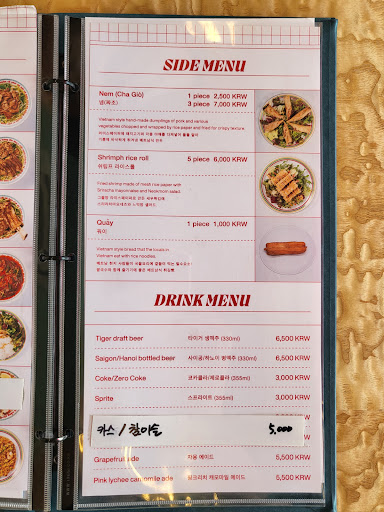 SIDE MENU
Nem (Cha Giò) 1 piece 2,500 KRW
넴(짜조) 3 piece 7,000 KRW
Vietnam style hand-made dumplings of pork and various
vegetables chopped and wrapped by rice paper and fried for crispy texture
Shrimph rice roll 5 piece 6,000 KRW
쉬림프 라이스롤
Fried shrimp made of mesh rice paper with
Sriracha mayonnaise and Neoknhom salad.
Quẩy 1 piece 1,000 KRW
꿔이
Vietnam style bread that the locals in
Vietnam eat with rice noodles.
DRINK MENU
Tiger draft beer 타이거 생맥주 (330ml) 6,500 KRW
Saigon/Hanoi bottled beer 사이공/하노이 병맥주 (330ml) 6,500 KRW
Coke/Zero Coke 코카콜라/제로콜라 (355ml) 3,000 KRW
Sprite 스프라이트 (355ml) 3,000 KRW
카스 / 참이슬 5,000
Grapefruit ade 자몽 에이드 5,500 KRW
Pink lychee camomile ade 핑크리치 캐모마일 에이드 5,500 KRW